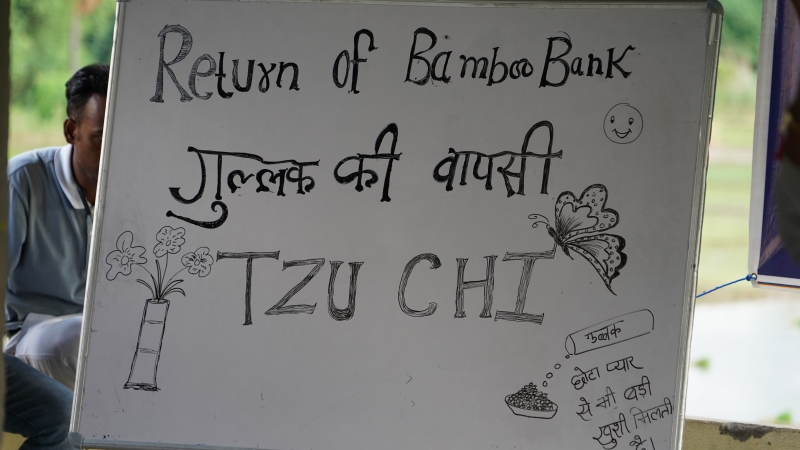 Return of Bamboo Bank
गुल्लक की वापसी
TZU CHI
गुल्लक
छोटा प्यार
से भी बड़ी
खुशी मिलती
है।